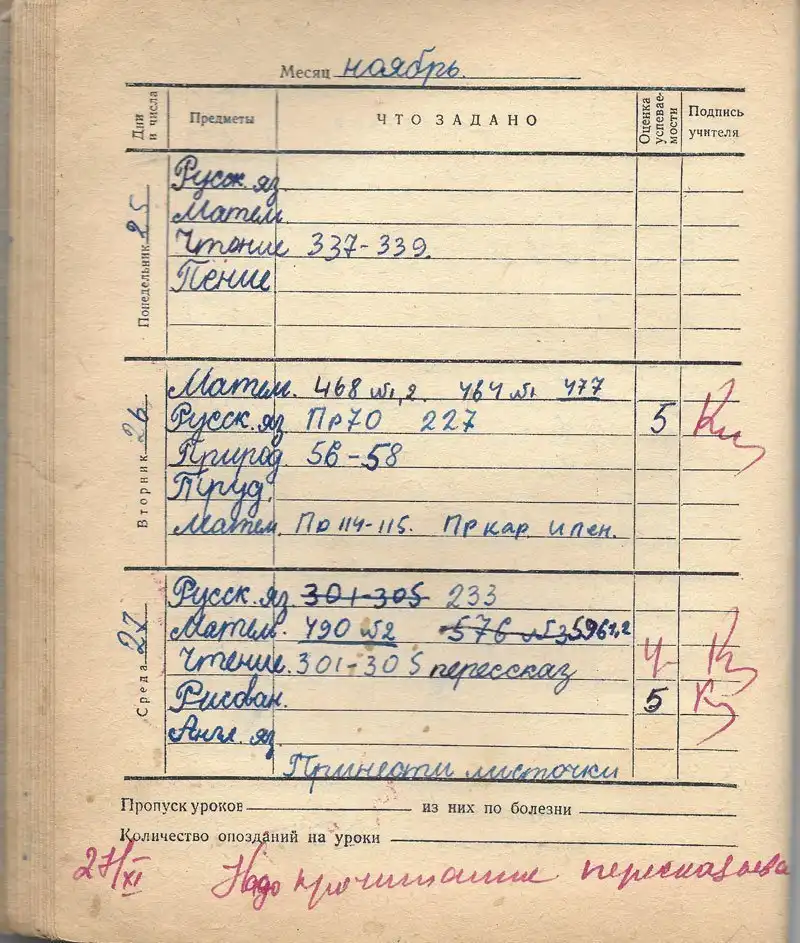 Месяц ноябрь.
Дни и числа Предметы ЧТО ЗАДАНО Оценка успевае-мости Подпись учителя
Понедельник 25
Русск. яз.
Матем.
Чтение 337-339.
Пение
Вторник 26
Матем. 468 №1,2. 464 №1 477
Русск. яз. Пр70 227 5
Природ. 56-58
Труд.
Матем. По 114-115. Пр кар и пен.
Среда 27
Русск. яз. 301-305 233
Матем. 490 №2 576 №3 596 1,2
Чтение. 301-305 перессказ 4
Рисован. 5
Англ. яз.
Принести листочки
Пропуск уроков из них по болезни
Количество опозданий на уроки
27/XI Надо прочитанное пересказыва